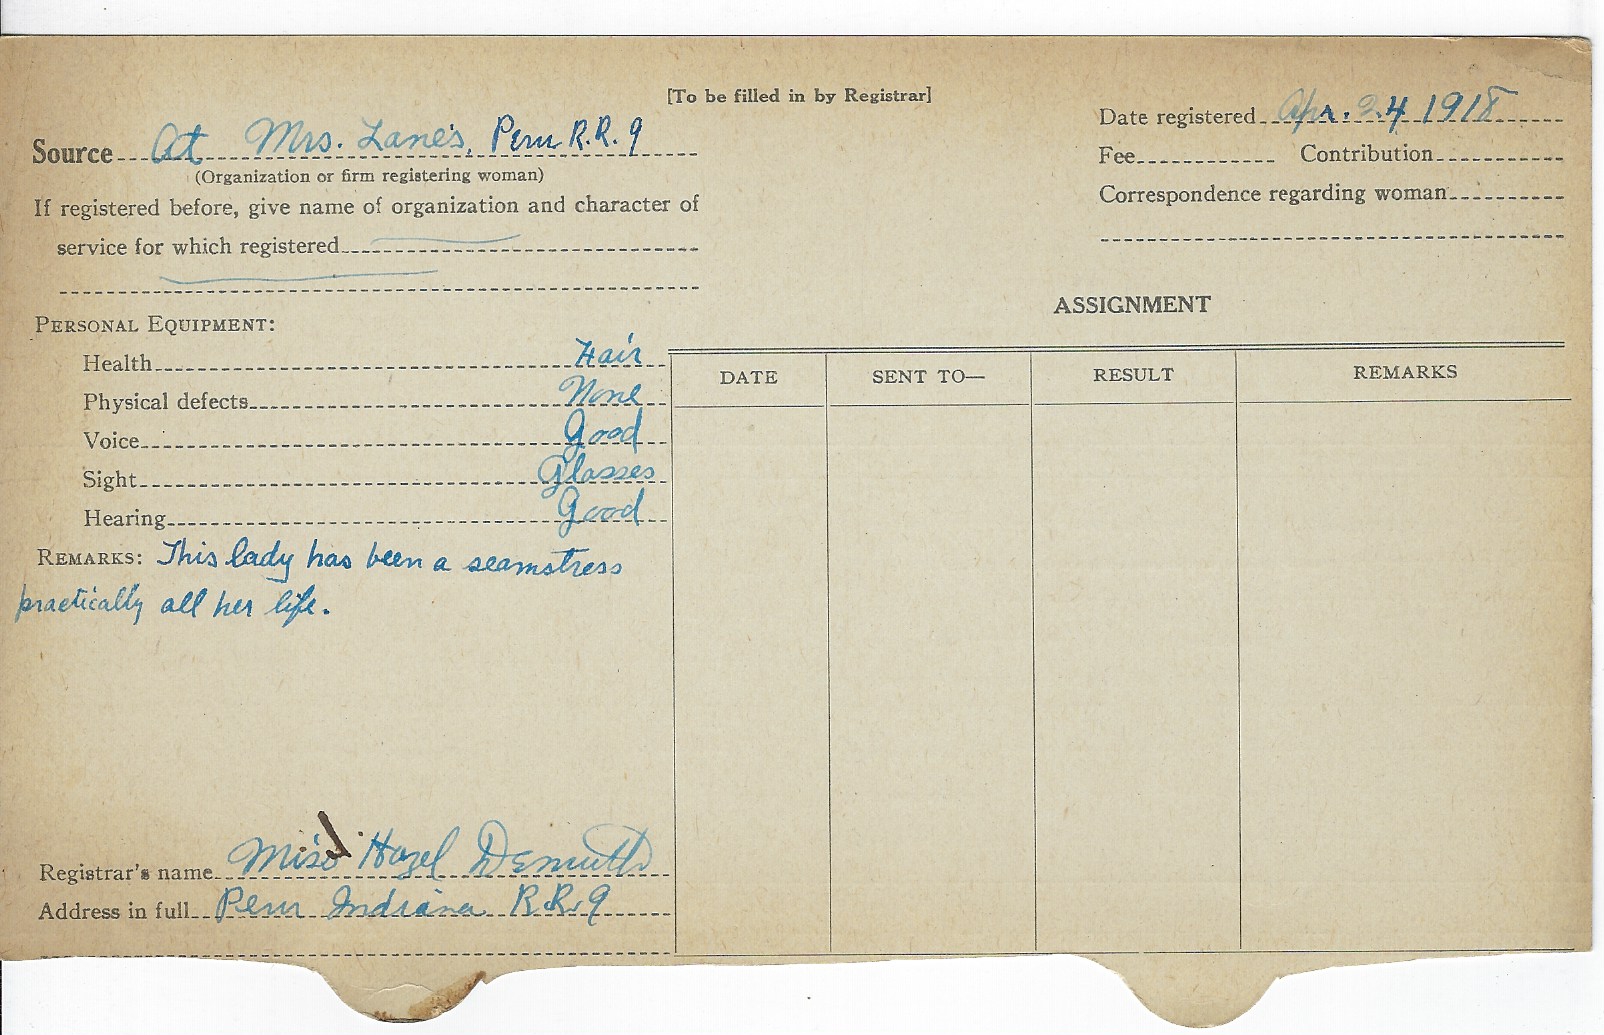 [To be filled in by Registrar]
Date registered Apr. 24 1918
Source At Mrs. Lane's, Peru R.R. 9
(Organization or firm registering woman)
Fee Contribution
If registered before, give name of organization and character of
service for which registered
Correspondence regarding woman
ASSIGNMENT
DATE SENT TO— RESULT REMARKS
PERSONAL EQUIPMENT:
Health Fair
Physical defects None
Voice Good
Sight Glasses
Hearing Good
REMARKS: This lady has been a seamstress
practically all her life.
Registrar's name Miss Hazel Demuth
Address in full Peru Indiana R.R. 9